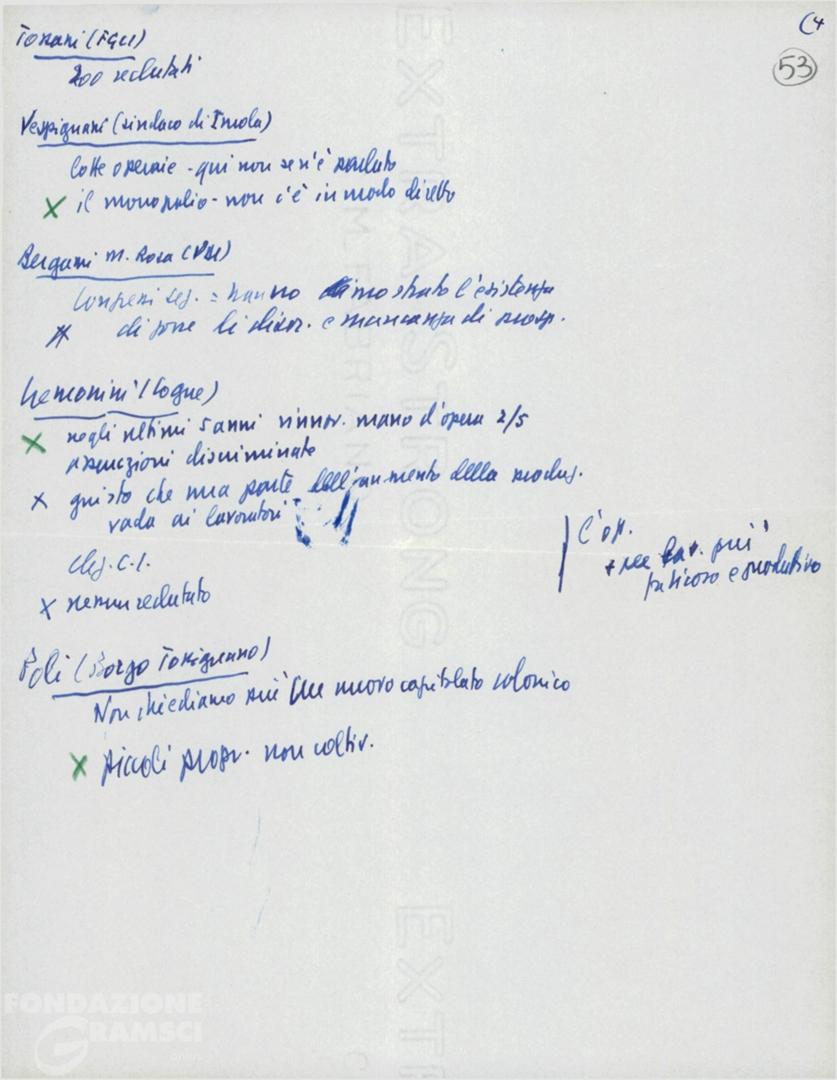 (4
53
Tossani (FGCI)
200 reclutati
Vespignani (sindaco di Imola)
Lotte operaie - qui non se n'è parlato
X il monopolio - non c'è in modo diretto
Bergami M. Rosa (UDI)
Compagni seg. = hanno dimostrato l'esistenza
X di forze li discr. e mancanza di prosp.
(Cogne)
X negli ultimi 5 anni rinnov. mano d'opera 2/5
assunzioni discriminate
X giusto che una parte dell'aumento della produz.
vada ai lavoratori
C.I.
X nessun reclutato
L'op.
lav. più
faticoso e produttivo
Poli (Borgo Tossignano)
Non chiediamo più un nuovo capitolato colonico
X piccoli propr. non coltiv.
EXTRA STRONG
M. FABRIANO
EXT
FONDAZIONE
GRAMSCI